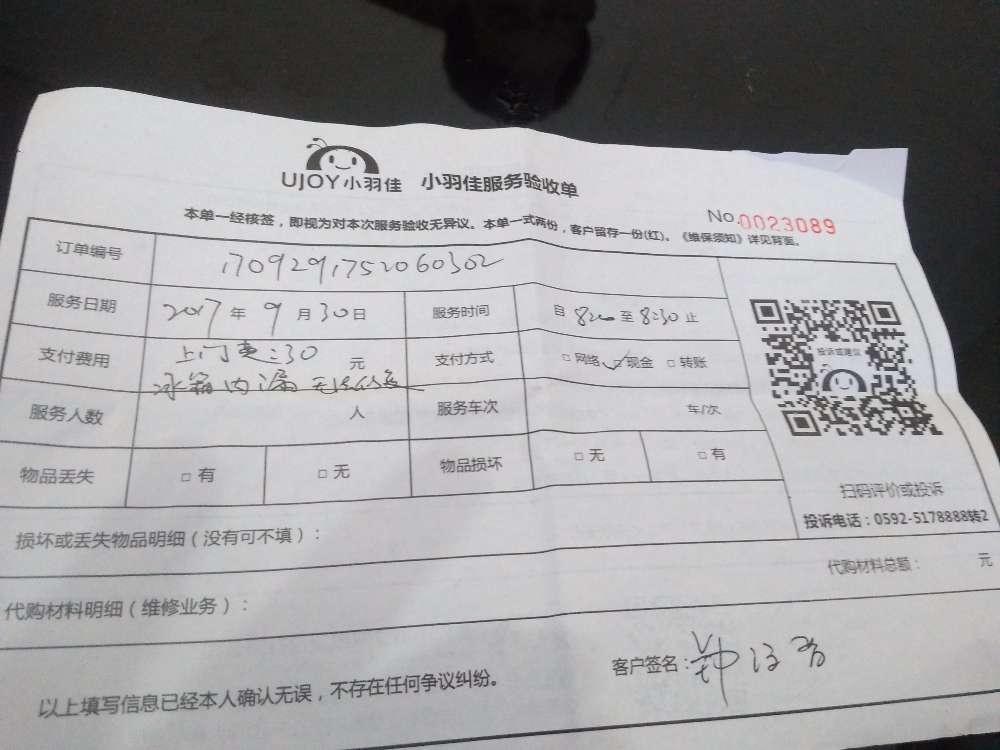 UJOY小羽佳 小羽佳服务验收单
No.0023089
本单一经核签，即视为对本次服务验收无异议。本单一式两份，客户留存一份(红)。《维保须知》详见背面。
订单编号 1709291752060302
服务日期 2017年9月30日 服务时间 自8:00至8:30止
支付费用 上门费:30元 支付方式 □网络 ✓现金 □转账
冰箱内漏无法修复
服务人数 人 服务车次 车/次
物品丢失 □有 □无 物品损坏 □无 □有
投诉或建议
扫码评价或投诉
投诉电话：0592-5178888转2
损坏或丢失物品明细（没有可不填）：
代购材料明细（维修业务）： 代购材料总额： 元
以上填写信息已经本人确认无误，不存在任何争议纠纷。 客户签名：钟